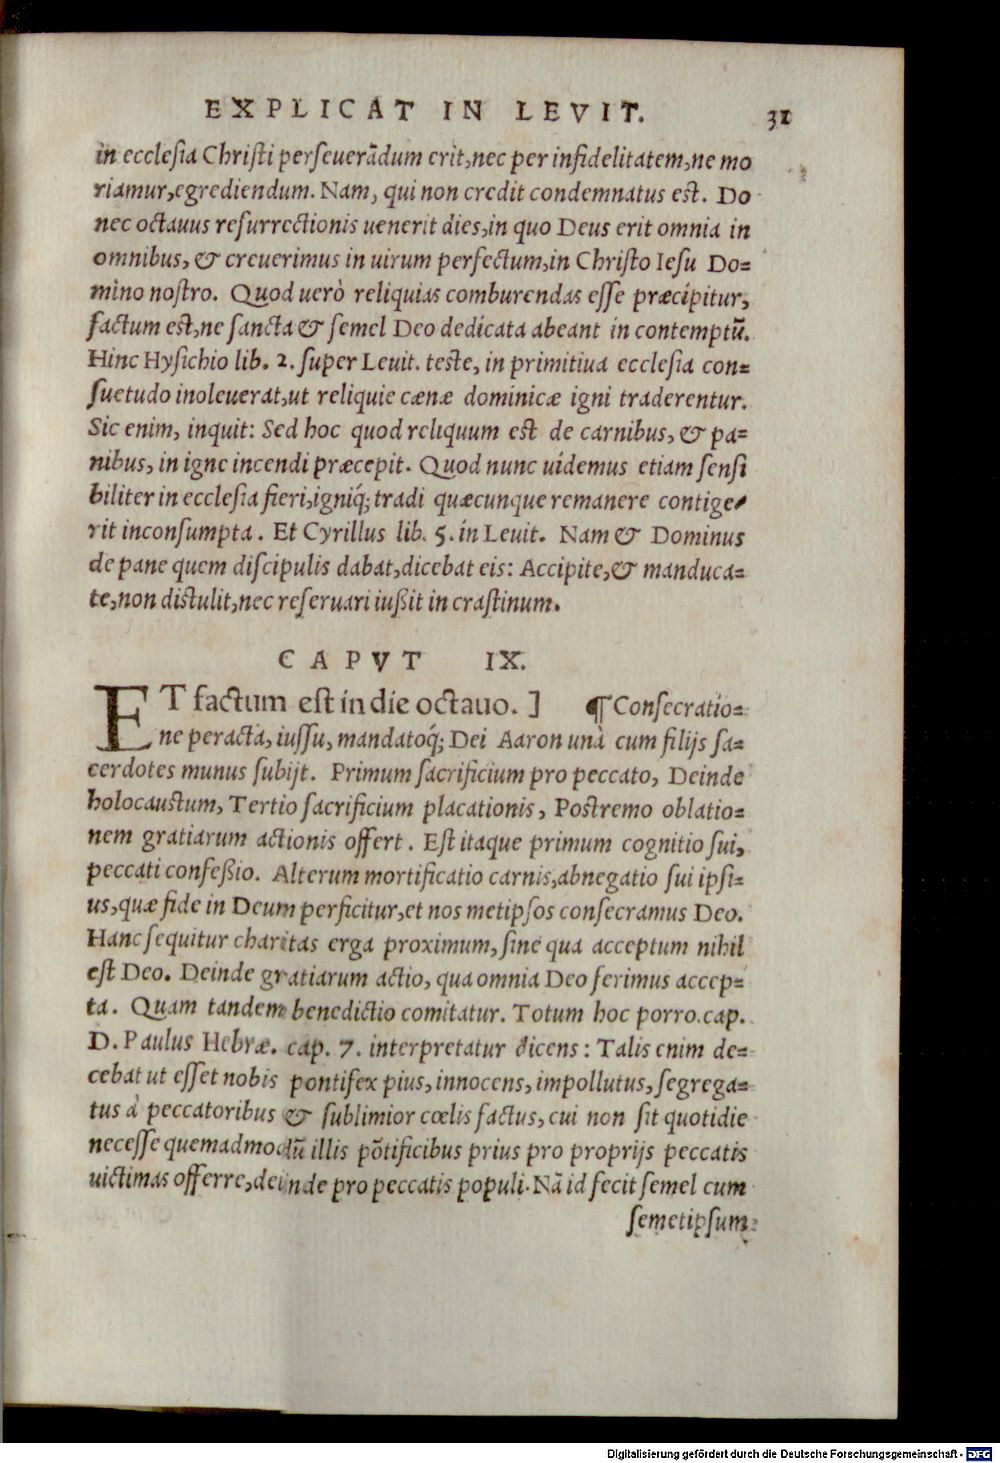 EXPLICAT IN LEVIT. 31
in ecclesia Christi perseuerãdum erit, nec per infidelitatem, ne mo
riamur, egrediendum. Nam, qui non credit condemnatus est. Do
nec octauus resurrectionis uenerit dies, in quo Deus erit omnia in
omnibus, & creuerimus in uirum perfectum, in Christo Iesu Do=
mino nostro. Quod uerò reliquias comburendas esse præcipitur,
factum est, ne sancta & semel Deo dedicata abeant in contemptũ.
Hinc Hysichio lib. 2. super Leuit. teste, in primitiua ecclesia con=
suetudo inoleuerat, ut reliquie cænæ dominicæ igni traderentur.
Sic enim, inquit: Sed hoc quod reliquum est de carnibus, & pa=
nibus, in igne incendi præcepit. Quod nunc uidemus etiam sensi
biliter in ecclesia fieri, igniq́; tradi quæcunque remanere contige
rit inconsumpta. Et Cyrillus lib. 5. in Leuit. Nam & Dominus
de pane quem discipulis dabat, dicebat eis: Accipite, & manduca=
te, non distulit, nec reseruari iußit in crastinum.
CAPVT IX.
ET factum est in die octauo. ] ¶ Consecratio=
ne peracta, iussu, mandatoq́; Dei Aaron unà cum filijs sa=
cerdotes munus subijt. Primum sacrificium pro peccato, Deinde
holocaustum, Tertio sacrificium placationis, Postremo oblatio=
nem gratiarum actionis offert. Est itaque primum cognitio sui,
peccati confeßio. Alterum mortificatio carnis, abnegatio sui ipsi=
us, quæ fide in Deum perficitur, et nos metipsos consecramus Deo.
Hanc sequitur charitas erga proximum, sine qua acceptum nihil
est Deo. Deinde gratiarum actio, qua omnia Deo ferimus accep=
ta. Quam tandem benedictio comitatur. Totum hoc porro cap.
D. Paulus Hebræ. cap. 7. interpretatur dicens: Talis enim de=
cebat ut esset nobis pontifex pius, innocens, impollutus, segrega=
tus à peccatoribus & sublimior cœlis factus, cui non sit quotidie
necesse quemadmodũ illis põtificibus prius pro proprijs peccatis
uictimas offerre, deinde pro peccatis populi. Nã id fecit semel cum
semetipsum
Digitalisierung gefördert durch die Deutsche Forschungsgemeinschaft - DFG